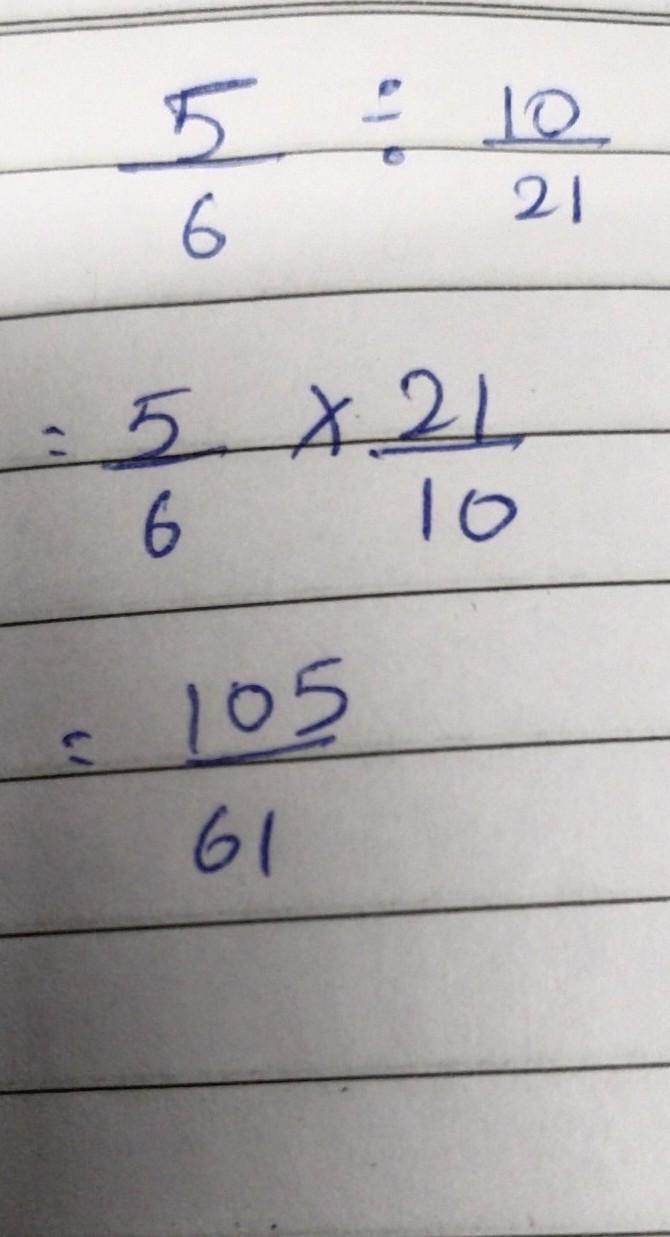 5/6 ÷ 10/21
= 5/6 × 21/10
= 105/61